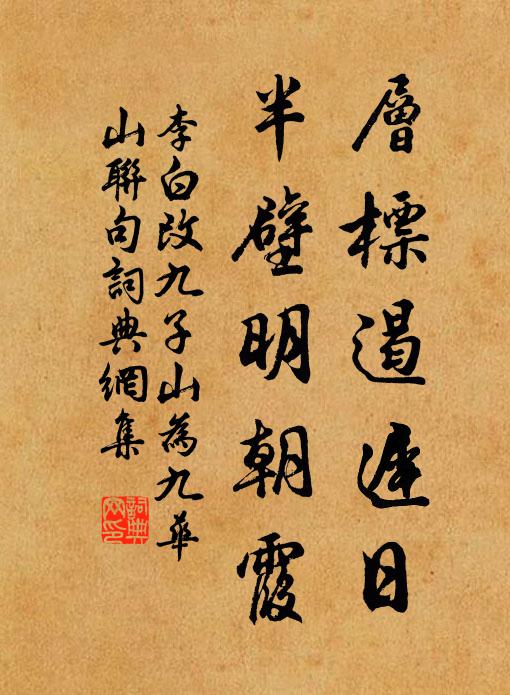 層標遏遲日
半壁明朝霞
李白改九子山為九華
山聯句詞典網集
詞典网印